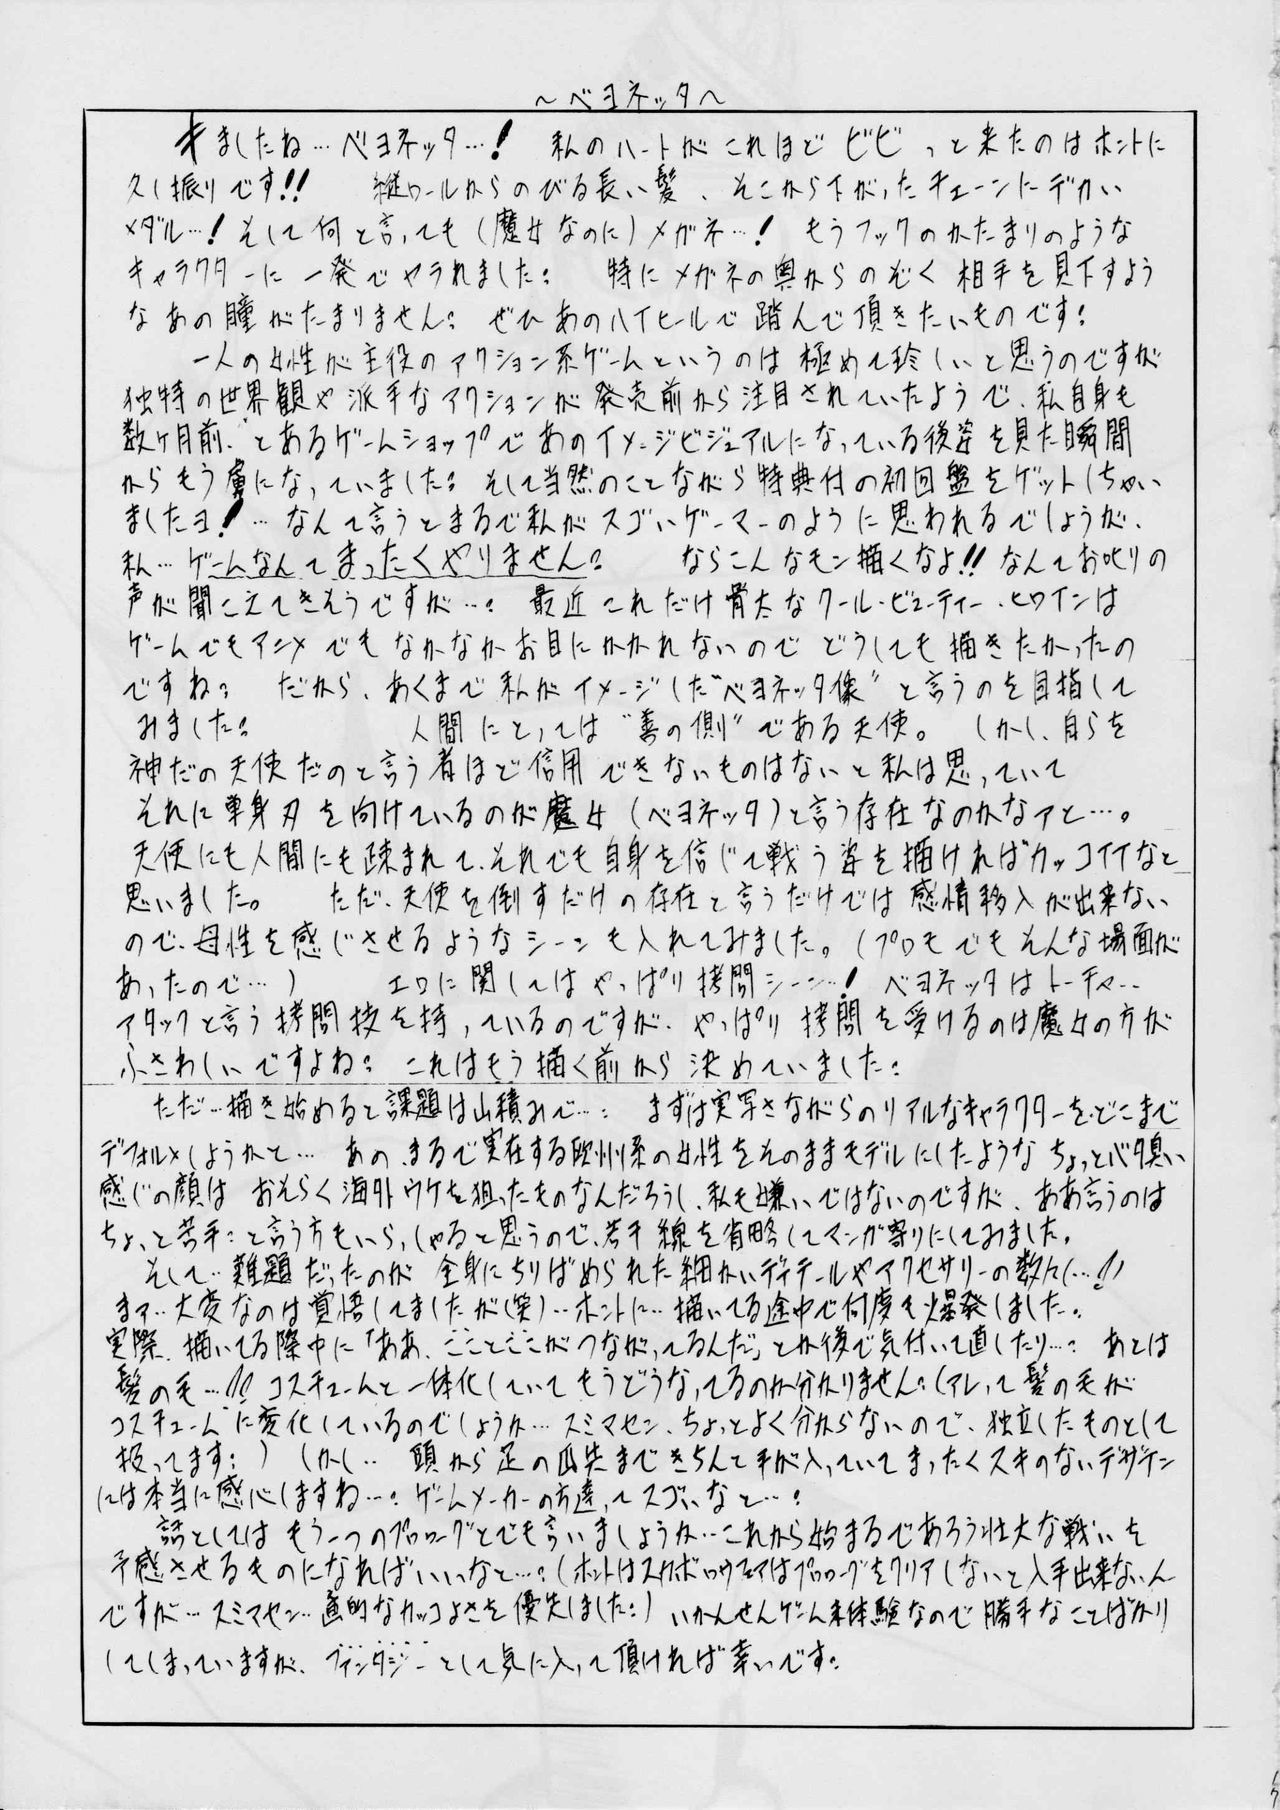 ～ベヨネッタ～
キましたね…ベヨネッタ…! 私のハートがこれほど ビビっと来たのはホントに
久し振りです!! 縦ロールからのびる長い髪、そこから下がったチェーンにデカい
メダル…! そして何と言っても(魔女なのに)メガネ…! もうフックのかたまりのような
キャラクターに一発でヤラれました: 特にメガネの奥からのぞく相手を見下すよう
なあの瞳がたまりません: ぜひあのハイヒールで踏んで頂きたいものです:
一人の女性が主役のアクション系ゲームというのは極めて珍しいと思うのですが
独特の世界観や派手なアクションが発売前から注目されていたようで、私自身も
数ヶ月前、とあるゲームショップであのイメージビジュアルになっている後姿を見た瞬間
からもう虜になっていました: そして当然のことながら特典付の初回盤をゲットしちゃい
ましたヨ!…なんて言うとまるで私がスゴいゲーマーのように思われるでしょうが、
私…ゲームなんてまったくやりません: ならこんなモン描くなよ!! なんてお叱りの
声が聞こえてきそうですが…: 最近これだけ骨太なクール・ビューティー・ヒロインは
ゲームでもアニメでもなかなかお目にかかれないのでどうしても描きたかったの
ですね: だから、あくまで私がイメージした“ベヨネッタ像”と言うのを目指して
みました: 人間にとっては“善の側”である天使。 しかし、自らを
神だの天使だのと言う者ほど信用できないものはないと私は思っていて
それに単身刃を向けているのが魔女(ベヨネッタ)と言う存在なのかなァと…。
天使にも人間にも疎まれて、それでも自身を信じて戦う姿を描ければカッコイイなと
思いました。 ただ、天使を倒すだけの存在と言うだけでは感情移入が出来ない
ので、母性を感じさせるようなシーンも入れてみました。(プロモでもそんな場面が
あったので…) エロに関してはやっぱり拷問シーン…! ベヨネッタはトーチャー
アタックと言う拷問技を持っているのですが、やっぱり拷問を受けるのは魔女の方が
ふさわしいですよね: これはもう描く前から決めていました:
ただ…描き始めると課題は山積みで…: まずは実写さながらのリアルなキャラクターを、どこまで
デフォルメしようかと… あの、まるで実在する欧州系の女性をそのままモデルにしたようなちょっとバタ臭い
感じの顔は おそらく海外ウケを狙ったものなんだろうし、私も嫌いではないのですが、ああ言うのは
ちょっと苦手:と言う方もいらっしゃると思うので、若干線を省略してマンガ寄りにしてみました。
そして…難題だったのが 全身にちりばめられた細かいディテールやアクセサリーの数々…!!
まァ…大変なのは覚悟してましたが(笑)…ホントに…描いてる途中で何度も爆発しました:
実際、描いてる際中に「ああ、こことここがつながってるんだ」とか後で気付いて直したり…: あとは
髪の毛…!! コスチュームと一体化していてもうどうなってるのか分かりません:(アレって髪の毛が
コスチュームに変化しているのでしょうか…スミマセン、ちょっとよく分からないので、独立したものとして
扱ってます:) しかし… 頭から足の爪先まできちんと手が入っていてまったくスキのないデザイン
には本当に感心しますね…: ゲームメーカーの方達ってスゴいなと…:
話としては もう一つのプロローグとでも言いましょうか…これから始まるであろう壮大な戦いを
予感させるものになればいいなと…:(ホントはスカボロウフェアはプロローグをクリアしないと入手出来ないん
ですが…スミマセン…画的なカッコよさを優先しました:) いかんせんゲーム未体験なので勝手なことばかり
してしまっていますが、ファンタジーとして気に入って頂ければ幸いです: